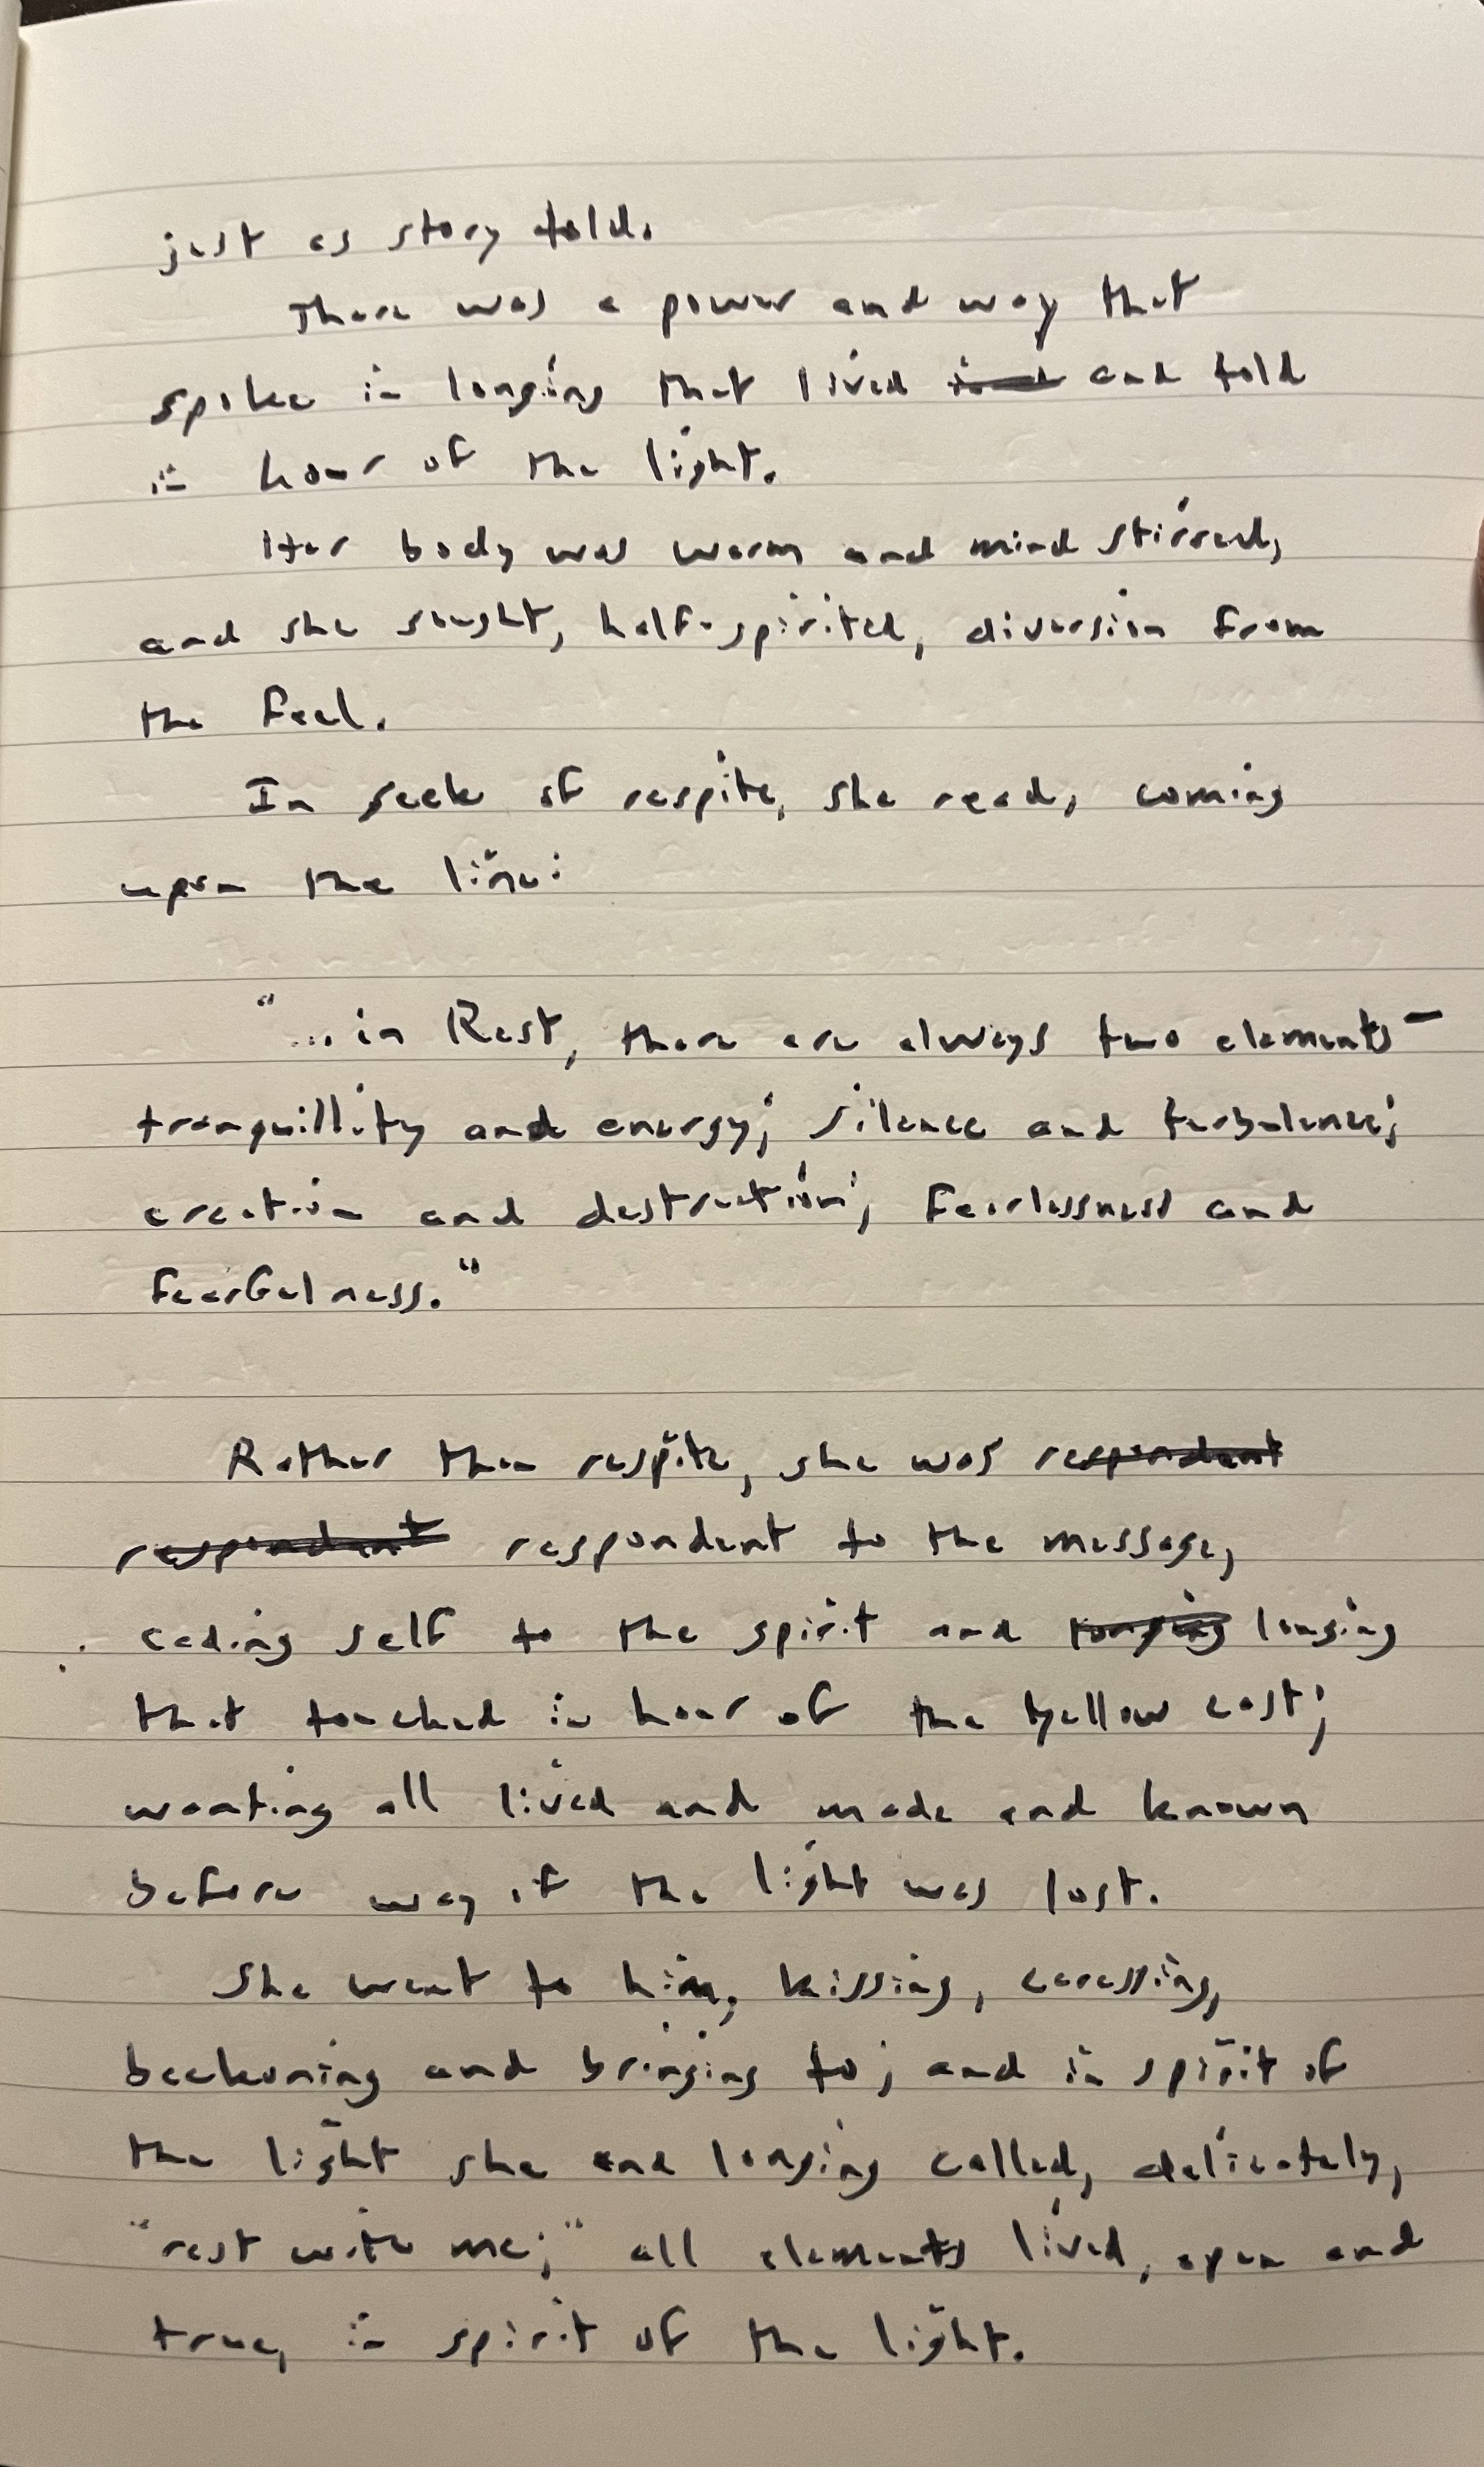 just as story told.
There was a power and way that
spoke in longing that lived and told
in hour of the light.
Her body was warm and mind stirred,
and she sought, half-spirited, diversion from
the feel.
In seek of respite, she read, coming
upon the line:
"... in Rest, there are always two elements –
tranquillity and energy; silence and turbulence;
creation and destruction; fearlessness and
fearfulness."
Rather than respite, she was respondent
respondent respondent to the message,
ceding self to the spirit and longing longing
that touched in hour of the yellow cast;
wanting all lived and made and known
before way of the light was lost.
She went to him, kissing, caressing,
beckoning and bringing to; and in spirit of
the light she and longing called, delicately,
"rest with me;" all elements lived, open and
true, in spirit of the light.